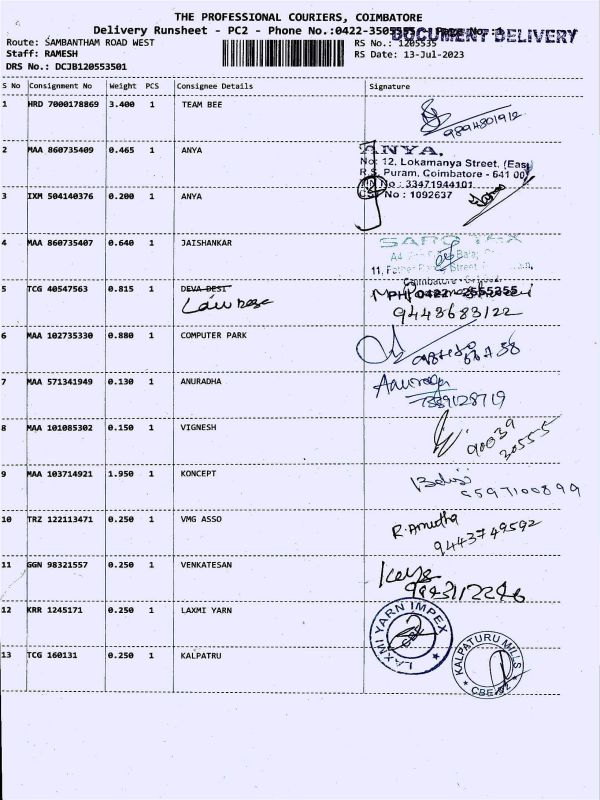 THE PROFESSIONAL COURIERS, COIMBATORE
Delivery Runsheet - PC2 - Phone No.:0422-
DOCUMENT DELIVERY
Route: SAMBANTHAM ROAD WEST RS No.: 1205535
Staff: RAMESH RS Date: 13-Jul-2023
DRS No.: DCJB120553501
S No Consignment No Weight PCS Consignee Details Signature
1 HRD 7000178869 3.400 1 TEAM BEE
9894801912
2 MAA 860735409 0.465 1 ANYA
ANYA,
No: 12, Lokamanya Street, (East)
R.S. Puram, Coimbatore - 641 00
TIN No : 33471944101
3 IXM 504140376 0.200 1 ANYA
CST No : 1092637
4 MAA 860735407 0.640 1 JAISHANKAR
SARO TEX
11,
Coimbatore
5 TCG 40547563 0.815 1 DEVA DESI
PH: 0422 - 2555355
9443683122
6 MAA 102735330 0.880 1 COMPUTER PARK
7 MAA 571341949 0.130 1 ANURADHA
8 MAA 101085302 0.150 1 VIGNESH
90039
20555
9 MAA 103714921 1.950 1 KONCEPT
Balaji
9597100899
10 TRZ 122113471 0.250 1 VMG ASSO
R. Amutha
9443749592
11 GGN 98321557 0.250 1 VENKATESAN
12 KRR 1245171 0.250 1 LAXMI YARN
LAXMI YARN IMPEX
13 TCG 160131 0.250 1 KALPATRU
KALPATURU MILLS
CBE-02